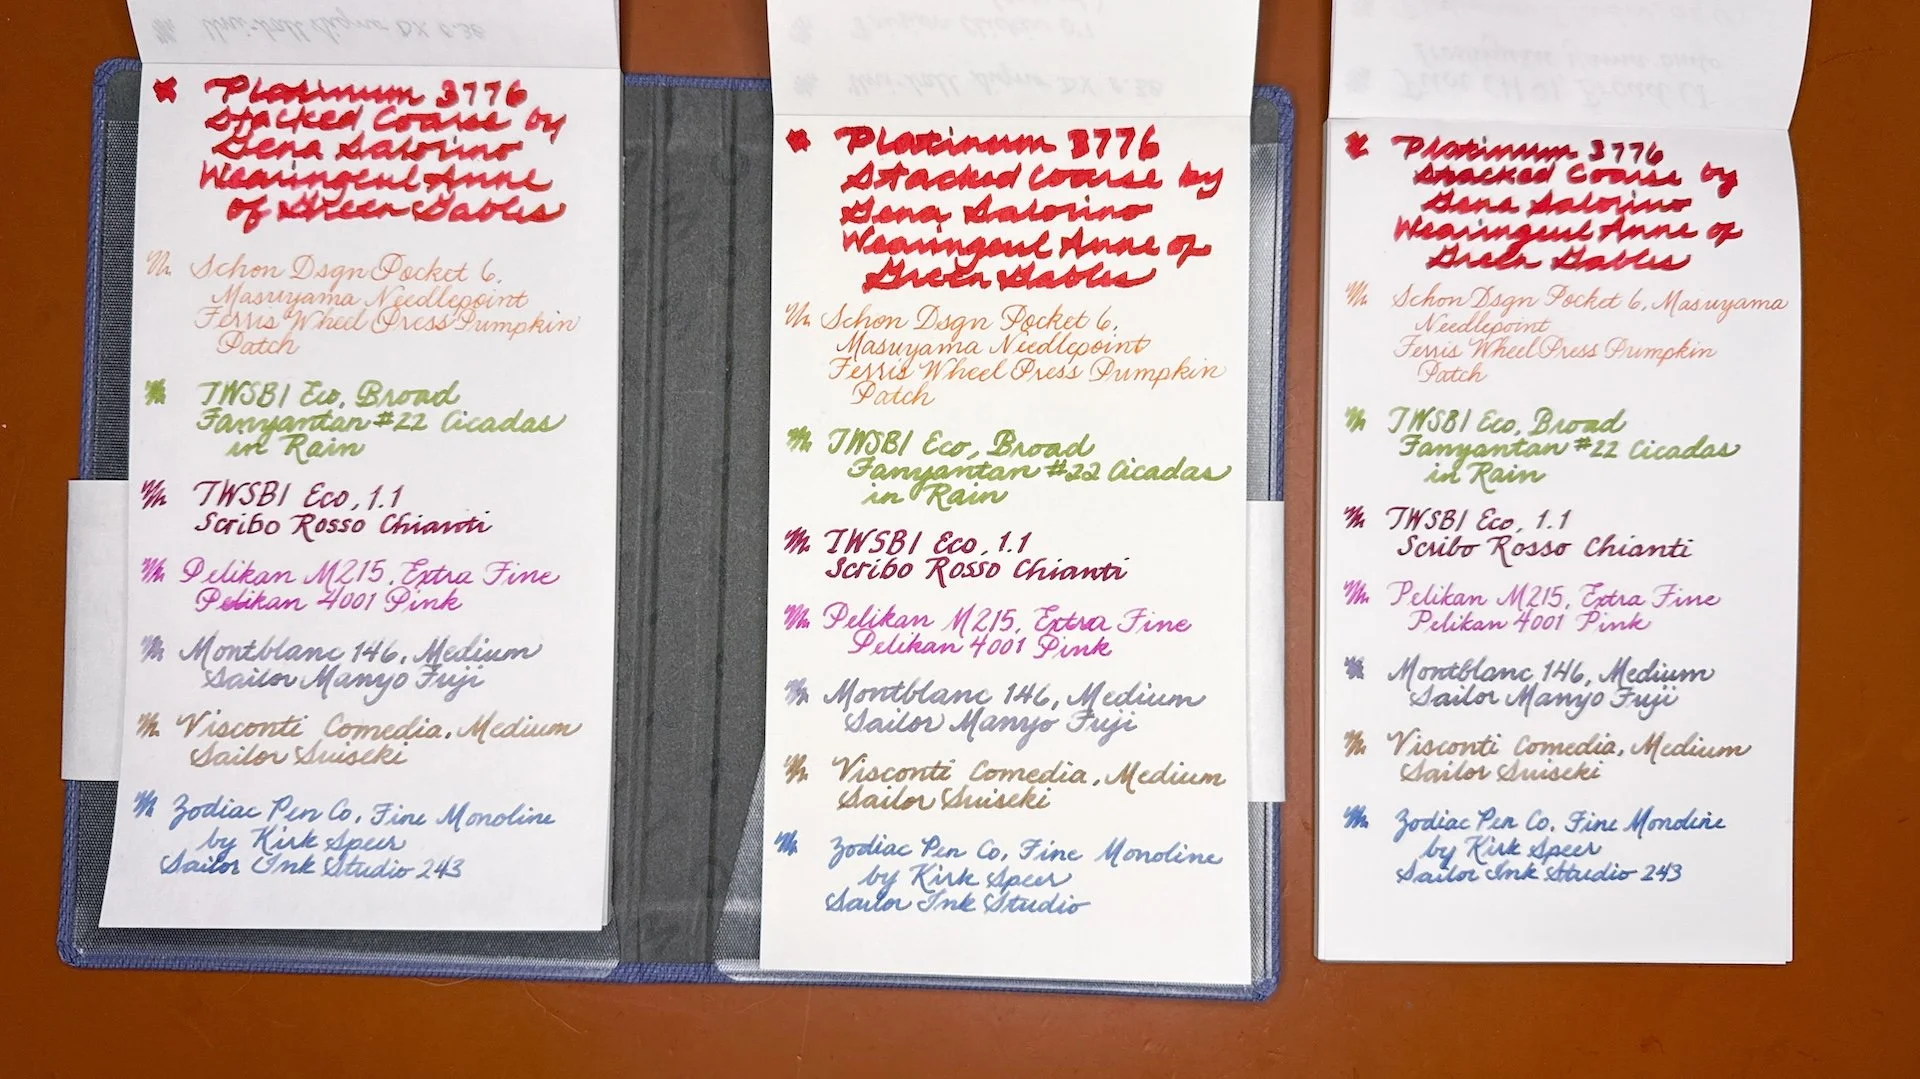 Platinum 3776
Stacked Coarse by
Gena Salorino
Wearingeul Anne
of Green Gables
Schon Dsgn Pocket 6,
Masuyama Needlepoint
Ferris Wheel Press Pumpkin
Patch
TWSBI Eco, Broad
Fanyantan #22 Cicadas
in Rain
TWSBI Eco, 1.1
Scribo Rosso Chianti
Pelikan M215, Extra Fine
Pelikan 4001 Pink
Montblanc 146, Medium
Sailor Manyo Fuji
Visconti Comedia, Medium
Sailor Suiseki
Zodiac Pen Co, Fine Monoline
by Kirk Speer
Sailor Ink Studio 243
Uni-ball Signo DX 0.38
Platinum 3776
Stacked Coarse by
Gena Salorino
Wearingeul Anne of
Green Gables
Schon Dsgn Pocket 6,
Masuyama Needlepoint
Ferris Wheel Press Pumpkin
Patch
TWSBI Eco, Broad
Fanyantan #22 Cicadas
in Rain
TWSBI Eco, 1.1
Scribo Rosso Chianti
Pelikan M215, Extra Fine
Pelikan 4001 Pink
Montblanc 146, Medium
Sailor Manyo Fuji
Visconti Comedia, Medium
Sailor Suiseki
Zodiac Pen Co, Fine Monoline
by Kirk Speer
Sailor Ink Studio
Platinum 3776
Stacked Coarse by
Gena Salorino
Wearingeul Anne of
Green Gables
Schon Dsgn Pocket 6, Masuyama
Needlepoint
Ferris Wheel Press Pumpkin
Patch
TWSBI Eco, Broad
Fanyantan #22 Cicadas
in Rain
TWSBI Eco, 1.1
Scribo Rosso Chianti
Pelikan M215, Extra Fine
Pelikan 4001 Pink
Montblanc 146, Medium
Sailor Manyo Fuji
Visconti Comedia, Medium
Sailor Suiseki
Zodiac Pen Co, Fine Monoline
by Kirk Speer
Sailor Ink Studio 243